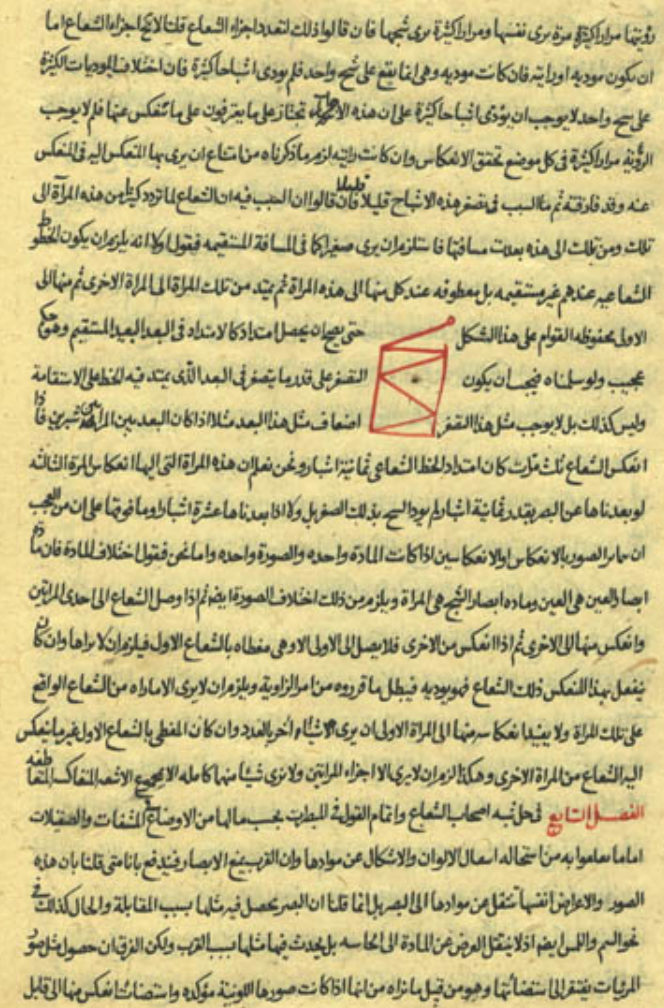 رؤيتها مرارا كثيرة مرة يرى نفسها ومرارا كثيرة يرى شبحها فان قالوا ذلك لتعدد اجزاء الشعاع قلنا اجزاء الشعاع اما
ان يكون موديه او رايته فان كانت موديه وهى انما يقع على شبح واحد فلم يودى اشباحا كثيرة فان اختلاف الموديات الكثيرة
على شبح واحد لا يوجب ان يؤدى اشباحا كثيرة على ان هذه تجتاز على ما يعترفون على ما تنعكس عنها فلم لا يوجب
الرؤية مرارا كثيرة فى كل موضع تحقق الانعكاس وان كانت رايته لزم ما ذكرناه من امتناع ان يرى بها المنعكس اليه فى المنعكس
عنه وقد فارقته ثم ما السبب فى تصغر هذه الاشباح قليلا قليلا فان قالوا ان السبب فيه ان الشعاع لما تردد كثيرا من هذه المرآة الى
تلك ومن تلك الى هذه بعدت مسافتها فاستلزم ان يرى صغيرا كما فى المسافة المستقيمه فنقول اولا انه يلزم ان يكون الخطوط
الشعاعيه عندهم غير مستقيمه بل معطوفه عند كل منها الى هذه المراة ثم يمتد من تلك المراة الى المراة الاخرى ثم منها الى
الاولى محفوظه القوام على هذا الشكل حتى يصح ان يحصل امتداد كالامتداد فى البعد البعيد المستقيم وهو حكم
عجيب ولو سلمناه فيجب ان يكون التصغر على قدر ما يتصغر فى البعد الذى يمتد فيه الخط على الاستقامة
وليس كذلك بل لا يوجب مثل هذا التصغر اضعاف مثل هذا البعد مثلا اذا كان البعد بين المراة شبرين فاذا
انعكس الشعاع ثلث مرات كان امتداد الخط الشعاعى ثمانية اشبار ونحن نعلم ان هذه المراة التى اليها انعكاس المرة الثالثه
لو بعدناها عن البصر بقدر ثمانية اشبار لم يود الشبح بذلك الصغر بل ولا اذا بعدناها عشرة اشبار وما فوقها على ان من العجب
ان الصور بالانعكاس او الانعكاسين اذا كانت المادة واحده والصورة واحده واما نحن فنقول اختلاف المادة فان مادة
ابصار العين هى العين وماده ابصار الشبح هى المراة ويلزم من ذلك اختلاف الصورة ايضا ثم اذا وصل الشعاع الى احدى المراتين
وانعكس منها الى الاخرى ثم اذا انعكس من الاخرى فلا يصل الى الاولى الا وهى مغطاه بالشعاع الاول فيلزم ان لا يراها وان كان
ينفعل بهذا المنعكس ذلك الشعاع فهو يوديه فيبطل ما قرروه من امر الزاوية ويلزم ان لا يرى الا ما راه من الشعاع الواقع
على تلك المراة ولا يفيد انعكاسه منها الى المراة الاولى ان يرى الاشياء اخر بالعدد وان كان المغطى بالشعاع الاول غير ما ينعكس
اليه الشعاع من المراة الاخرى وهكذا لزم ان لا يرى الا اجزاء المراتين ولا يرى شيئا منها كامله الا بمجموع الاشعه المتعاكسه المتقاطعه
الفصل السابع فى حل شبه اصحاب الشعاع واتمام القول فى المبصرات بحسب مالها من الاوضاع فى المشفات والصقيلات
اما ما تعلموا به من استحاله انتقال الالوان والاشكال عن موادها وان القرب يمنع الابصار فيندفع بانا متى قلنا بان هذه
الصور والاعراض انفسها تنتقل عن موادها الى البصر بل انما قلنا ان البصر يحصل فيه مثلها بسبب المقابلة والحال كذلك فى
الحواس واللمس ايضا اذ لا ينتقل العرض عن المادة الى الحاسه بل يحدث فيها مثلها بسبب القرب ولكن الفرق ان حصول مثل صور
المرئيات يفتقر الى استضائتها وهو من قبيل ما نراه من انها اذا كانت صورها اللونية مؤكده واستضائت انعكس منها الى قابل